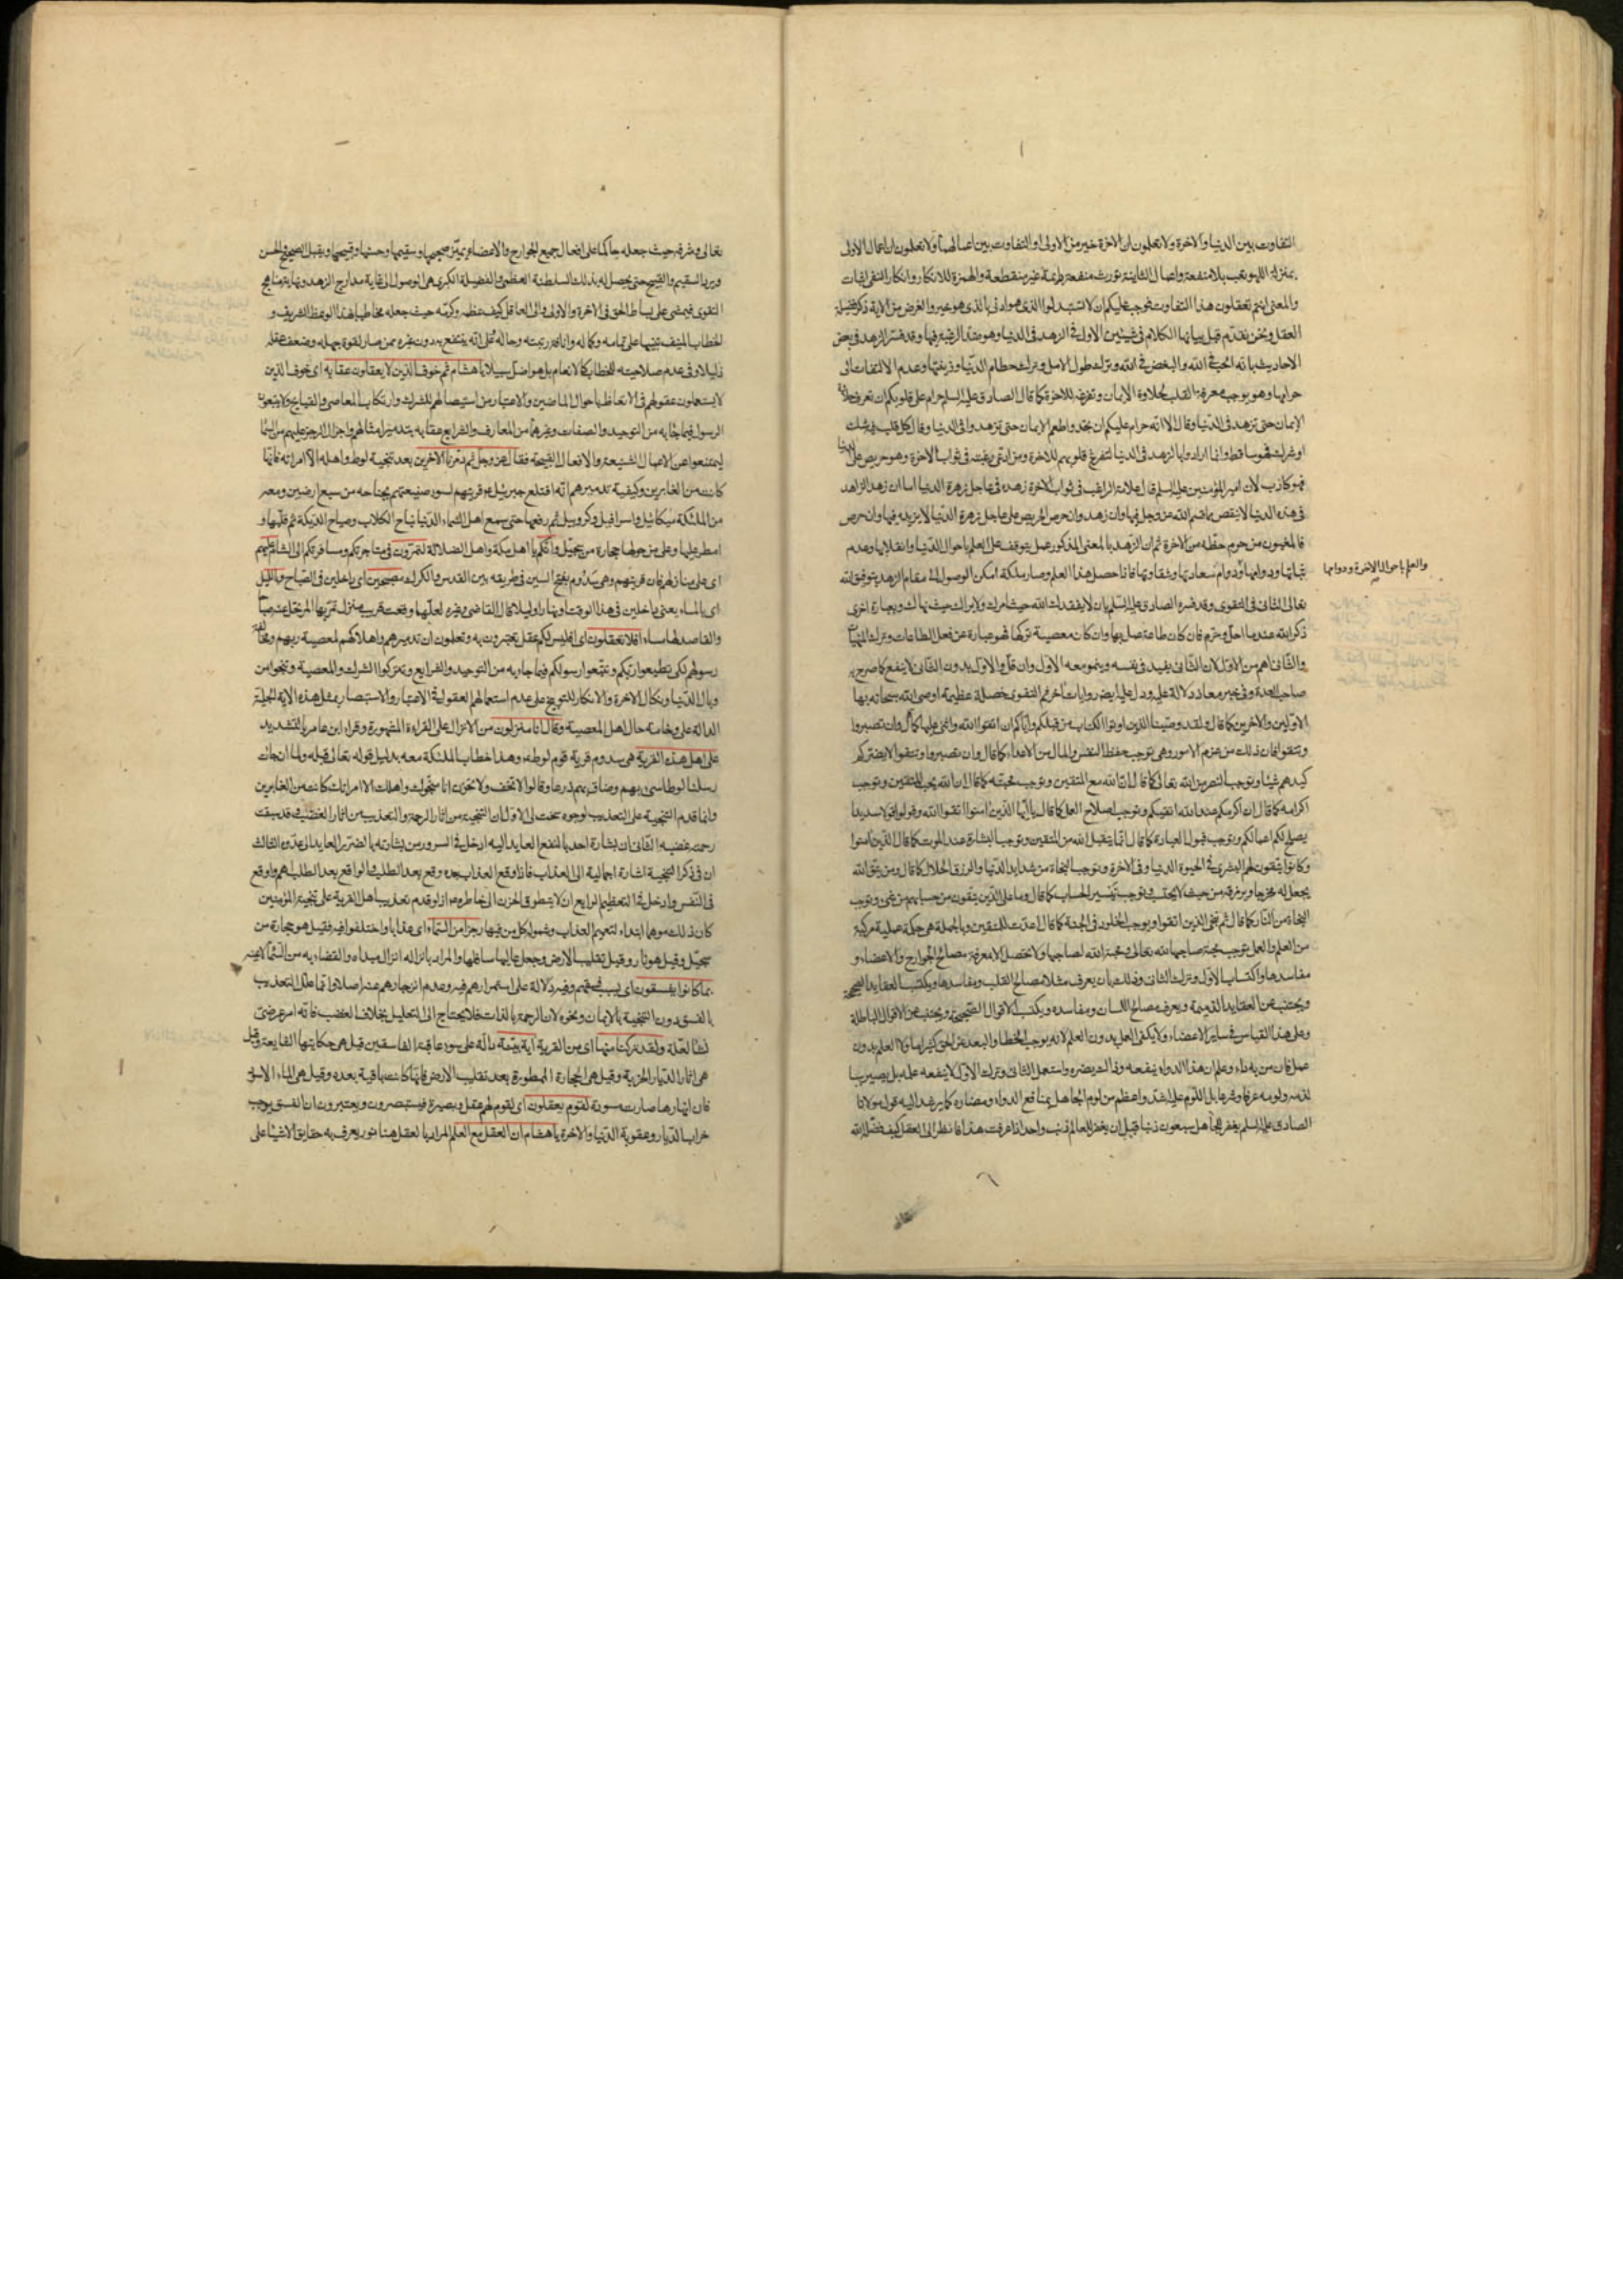 التفاوت بين الدنيا والآخرة ولا تعلمون ان الآخرة خير من الاولى او التفاوت بين اعمالهما ولا تعلمون ان اعمال الاولى
بمنزلة اللهو تعب بلا منفعة واعمال الثانية تورث منفعة دائمة غير منقطعة والهمزة للانكار وانكار النفي اثبات
والمعنى انتم تعقلون هذا التفاوت فوجب عليكم ان لا تستبدلوا الذي هو ادنى بالذي هو خير والغرض من الآية ذكر فضيلة
العقل ونحن نقدم قبل بيانها الكلام في شيئين الاول في الزهد في الدنيا وهو ضد الرغبة فيها وقد فسر الزهد في بعض
الاحاديث بانه الحب في الله والبغض في الله وترك طول الامل وترك حطام الدنيا وزينتها وعدم الالتفات الى
حرامها وهو يوجب معرفة القلب لحلاوة الايمان وتفرغه للآخرة كما قال الصادق عليه السلم حرام على قلوبكم ان تعرف حلاوة
الايمان حتى تزهد في الدنيا وقال الا انه حرام عليكم ان تجدوا طعم الايمان حتى تزهدوا في الدنيا وقال كل قلب فيه شك
او شرك فهو ساقط وانما ارادوا بالزهد في الدنيا لتفرغ قلوبهم للآخرة ومن ادعى رغبته في ثواب الآخرة وهو حريص على الدنيا
فهو كاذب لان امير المؤمنين عليه السلم قال علامة الراغب في ثواب الآخرة زهده في عاجل زهرة الدنيا اما ان زهد الزاهد
في هذه الدنيا لا ينقص مما قسم الله عز وجل فيها وان زهد وان حرص الحريص على عاجل زهرة الدنيا لا يزيد فيها وان حرص
فالمغبون من حرم حظه من الآخرة ثم ان الزهد بالمعنى المذكور عمل يتوقف على العلم باحوال الدنيا وانقلابها وعدم
ثباتها ودوامها ودوام سعادتها وشقاوتها فاذا حصل هذا العلم وصار ملكة امكن الوصول الى مقام الزهد بتوفيق الله
والعلم باحوال الآخرة ودوامها
تعالى الثاني في التقوى وقد فسره الصادق عليه السلم بان لا يفقدك الله حيث امرك ولا يراك حيث نهاك وبعبارة اخرى
ذكر الله عند ما احل وحرم فان كان طاعة عمل بها وان كان معصية تركها فهو عبارة عن فعل الطاعات وترك المنهيات
والثاني اهم من الاول لان الثاني يفيد في نفسه وينمو معه الاول وان قل والاول بدون الثاني لا ينفع كما صرح به
صاحب العدة وفي خبر معاذ دلالة عليه ودل عليه ايضا روايات اخر ثم التقوى خصلة عظيمة اوصى الله سبحانه بها
الاولين والآخرين كما قال ولقد وصينا الذين اوتوا الكتاب من قبلكم واياكم ان اتقوا الله واثنى عليها كما قال وان تصبروا
وتتقوا فان ذلك من عزم الامور وهي توجب حفظ النفس والمال من الاعداء كما قال وان تصبروا وتتقوا لا يضركم
كيدهم شيئا وتوجب النصر من الله تعالى كما قال ان الله مع المتقين وتوجب محبته كما قال ان الله يحب المتقين وتوجب
اكرامه كما قال ان اكرمكم عند الله اتقيكم وتوجب اصلاح العمل كما قال يا ايها الذين امنوا اتقوا الله وقولوا قولا سديدا
يصلح لكم اعمالكم وتوجب قبول العبادة كما قال انما يتقبل الله من المتقين وتوجب البشارة عند الموت كما قال الذين امنوا
وكانوا يتقون لهم البشرى في الحيوة الدنيا وفي الآخرة وتوجب النجاة من شدايد الدنيا والرزق الحلال كما قال ومن يتق الله
يجعل له مخرجا ويرزقه من حيث لا يحتسب وتوجب تيسير الحساب كما قال وما على الذين يتقون من حسابهم من شيء وتوجب
النجاة من النار كما قال ثم ننجي الذين اتقوا ويوجب الخلود في الجنة كما قال اعدت للمتقين وبالجملة هي حكمة عملية مركبة
من العلم والعمل توجب محبة صاحبها لله تعالى ومحبة الله لصاحبها ولا تحصل الا معرفة مصالح الجوارح والاعضاء و
مفاسدها واكتساب الاول وترك الثاني وذلك بان يعرف مثلا مصالح القلب ومفاسدها ويكتسب العقايد الصحيحة
ويجتنب عن العقايد الذميمة ويعرف مصالح اللسان ومفاسده ويكتسب الاقوال الصحيحة ويجتنب عن الاقوال الباطلة
وعلى هذا القياس في ساير الاعضاء ولا يكفي العمل بدون العلم لانه يوجب الخطا والبعد عن الحق كثيرا ولا العلم بدون
عمل فان من به داء وعلم ان هذا الدواء ينفعه وذاك يضره واستعمل الثاني وترك الاول لا ينفعه علمه بل يصير سببا
لذمه ولومه عرفا وشرعا بل اللوم عليه اشد واعظم من لوم الجاهل بمنافع الدواء ومضاره كما يرشد اليه قول مولانا
الصادق عليه السلم يغفر للجاهل سبعون ذنبا قبل ان يغفر للعالم ذنب واحد اذا عرفت هذا فانظر الى العقل كيف فضله الله
تعالى وشرفه حيث جعله حاكما على افعال جميع الجوارح والاعضاء ويميز صحيحها وسقيمها وحسنها وقبيحها ويقبل الصحيح والحسن
ويرد السقيم والقبيح حتى يحصل له بذلك السلطنة العظمى والفضيلة الكبرى هي الوصول الى غاية مدارج الزهد ونهاية مناهج
التقوى فيمشي على بساط الحق في الآخرة والاولى والى العاقل كيف عظمه وكرمه حيث جعله مخاطبا بهذا الوعظ الشريف و
الخطاب المنيف تنبيها على تمامه وكماله وانافة رتبته وحاله على انه ينتفع به دون غيره ممن صار لقوة جهله وضعف عقله
ذليلا وفي عدم صلاحيته للخطاب كالانعام بل هو اضل سبيلا يا هشام ثم خوف الذين لا يعقلون عقابه اي خوف الذين
لا يستعملون عقولهم في الاتعاظ باحوال الماضين والاعتبار من استيصالهم للشرك وارتكاب المعاصي والقبايح ولا يتبعون
الرسول فيما جاء به من التوحيد والصفات وغيرهما من المعارف والشرايع عقابه بتدمير امثالهم وانزال الرجز عليهم من السماء
ليمتنعوا عن الاعمال الشنيعة والافعال القبيحة فقال عز وجل ثم دمرنا الآخرين بعد تنجية لوط واهله الا امراته فانها
كانت من الغابرين وكيفية تدميرهم انه اقتلع جبرئيل ع قريتهم لسوء صنيعتهم بجناحه من سبع ارضين ومعه
من الملئكة ميكائيل واسرافيل وكروبيل ثم رفعها حتى سمع اهل السماء الدنيا نباح الكلاب وصياح الديكة ثم قلبها و
امطر عليها وعلى من حولها حجارة من سجيل وانكم يا اهل مكة واهل الضلالة لتمرون في متاجرتكم ومسافرتكم الى الشام عليهم
اي على منازلهم فان قريتهم وهي سدوم بفتح السين في طريقه بين القدس والكرك مصبحين اي داخلين في الصباح وبالليل
اي بالمساء يعني داخلين في هذا الوقت او نهارا وليلا قال القاضي وغيره لعلها وقعت قريب منزل تمر بها المرتحل عنه صباحا
والقاصد لها مساء افلا تعقلون اي افليس لكم عقل تعتبرون به وتعلمون ان تدميرهم واهلاكهم لمعصية ربهم ومخالفة
رسولهم لكي تطيعوا ربكم وتتبعوا رسولكم فيما جاء به من التوحيد والشرايع وتتركوا الشرك والمعصية وتنجوا من
وبال الدنيا ونكال الآخرة والانكار للتوبيخ على عدم استعمالهم العقول في الاعتبار والاستبصار بمثل هذه الآية الجلية
الدالة على وخامة حال اهل المعصية وقال انا منزلون من الانزال على القراءة المشهورة وقراءة ابن عامر بالتشديد
على اهل هذه القرية هي سدوم قرية قوم لوط ع وهذا خطاب الملئكة معه بدليل قوله تعالى قبله ولما ان جاءت
رسلنا لوطا سيء بهم وضاق بهم ذرعا وقالوا لا تخف ولا تحزن انا منجوك واهلك الا امراتك كانت من الغابرين
وانما قدم التنجية على التعذيب لوجوه سنحت لي الاول ان التنجية من اثار الرحمة والتعذيب من اثار الغضب وقد سبقت
رحمته غضبه الثاني ان بشارة احد بالنفع العايد اليه ادخل في السرور من بشارته بالضرر العايد الى عدوه الثالث
ان في ذكر التنجية اشارة اجمالية الى العذاب فاذا وقع العذاب بعده وقع بعد الطلب والواقع بعد الطلب اهم واوقع
في النفس وادخل في التعظيم الرابع ان لا يتطرق الحزن الى خاطره اذ لو قدم تعذيب اهل القرية على تنجية المؤمنين
كان ذلك موهما ابتداء لتعميم العذاب وشموله كل من فيها رجزا من السماء اي عذابا واختلفوا فيه فقيل هو حجارة من
سجيل وقيل هو نار وقيل تقليب الارض وجعل عاليها سافلها والمراد بانزاله انزال مبداه والقضاء به من السماء لا عينه
بما كانوا يفسقون اي بسبب فسقهم وفيه دلالة على استمرارهم فيه وعدم انزجارهم عنه اصلا وانما علل التعذيب
بالفسق دون التنجية بالايمان ونحوه لان الرحمة بالذات فلا يحتاج الى التعليل بخلاف الغضب فانه امر عرضي
ولقد تركنا منها اي من القرية آية بينة دالة على سوء عاقبة الفاسقين قيل هي حكايتها الشايعة وقيل
هي اثار الديار الخربة وقيل هي الحجارة الممطورة بعد تقليب الارض فانها كانت باقية بعده وقيل هي الماء الاسود
فان انهارها صارت مسودة لقوم يعقلون اي لقوم لهم عقل وبصيرة فيستبصرون ويعتبرون ان الفسق يوجب
خراب الديار وعقوبة الدنيا والآخرة يا هشام ان العقل مع العلم المراد بالعقل هنا نور يعرف به حقايق الاشياء على